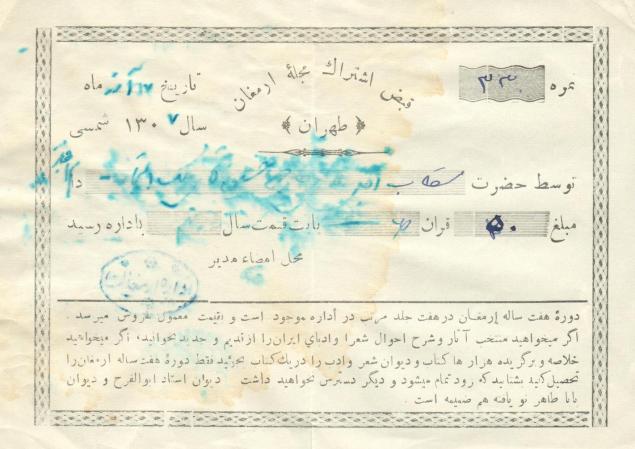 قبض اشتراك مجلهٔ ارمغان
﴿ طهران ﴾
نمره ۳۳۰
تاریخ ماه
سال ۱۳۰۷ شمسی
توسط حضرت
مبلغ ۵۰ قران بابت قیمت سال باداره رسید
محل امضاء مدیر
اداره ارمغان
دورهٔ هفت ساله ارمغان در هفت جلد مرتب در اداره موجود است و بقیمت معمول بفروش میرسد .
اگر میخواهید منتخب آثار و شرح احوال شعرا و ادبای ایران را از قدیم و جدید بخوانید، اگر میخواهید
خلاصه و برگزیده هزار ها کتاب و دیوان شعر و ادب را در یك کتاب بجوئید فقط دورهٔ هفت ساله ارمغان را
تحصیل کنید بشتابید که زود تمام میشود و دیگر دسترس نخواهید داشت دیوان استاد ابوالفرج و دیوان
بابا طاهر نو یافته هم ضمیمه است .